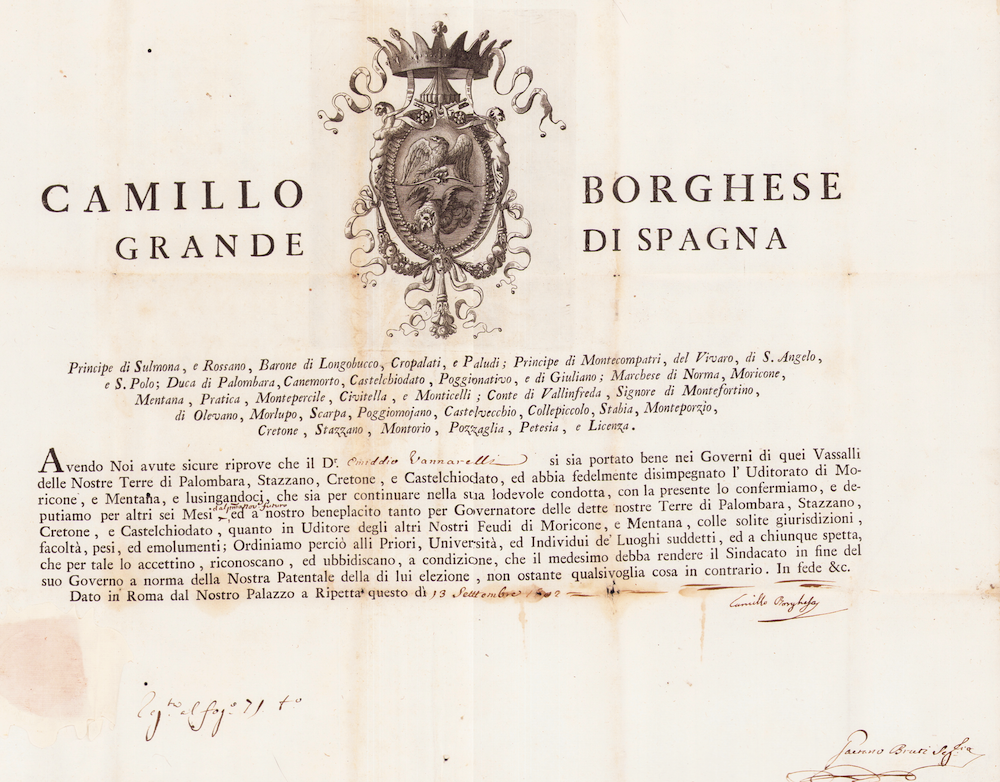 CAMILLO BORGHESE
GRANDE DI SPAGNA
Principe di Sulmona, e Rossano, Barone di Longobucco, Cropalati, e Paludi; Principe di Montecompatri, del Vivaro, di S. Angelo,
e S. Polo; Duca di Palombara, Canemorto, Castelchiodato, Poggionativo, e di Giuliano; Marchese di Norma, Moricone,
Mentana, Pratica, Montepercile, Civitella, e Monticelli; Conte di Vallinfreda, Signore di Montefortino,
di Olevano, Morlupo, Scarpa, Poggiomojano, Castelvecchio, Collepiccolo, Stabia, Monteporzio,
Cretone, Stazzano, Montorio, Pozzaglia, Petesia, e Licenza.
Avendo Noi avute sicure riprove che il Dr. Emiddio Vannarelli si sia portato bene nei Governi di quei Vassalli
delle Nostre Terre di Palombara, Stazzano, Cretone, e Castelchiodato, ed abbia fedelmente disimpegnato l' Uditorato di Mo-
ricone, e Mentana, e lusingandoci, che sia per continuare nella sua lodevole condotta, con la presente lo confermiamo, e de-
putiamo per altri sei Mesi ed a nostro beneplacito tanto per Governatore delle dette nostre Terre di Palombara, Stazzano,
Cretone, e Castelchiodato, quanto in Uditore degli altri Nostri Feudi di Moricone, e Mentana, colle solite giurisdizioni,
facoltà, pesi, ed emolumenti; Ordiniamo perciò alli Priori, Università, ed Individui de' Luoghi suddetti, ed a chiunque spetta,
che per tale lo accettino, riconoscano, ed ubbidiscano, a condizione, che il medesimo debba rendere il Sindacato in fine del
suo Governo a norma della Nostra Patentale della di lui elezione, non ostante qualsivoglia cosa in contrario. In fede &c.
Dato in Roma dal Nostro Palazzo a Ripetta questo dì 13 Settembre
Camillo Borghese
71
Bruti